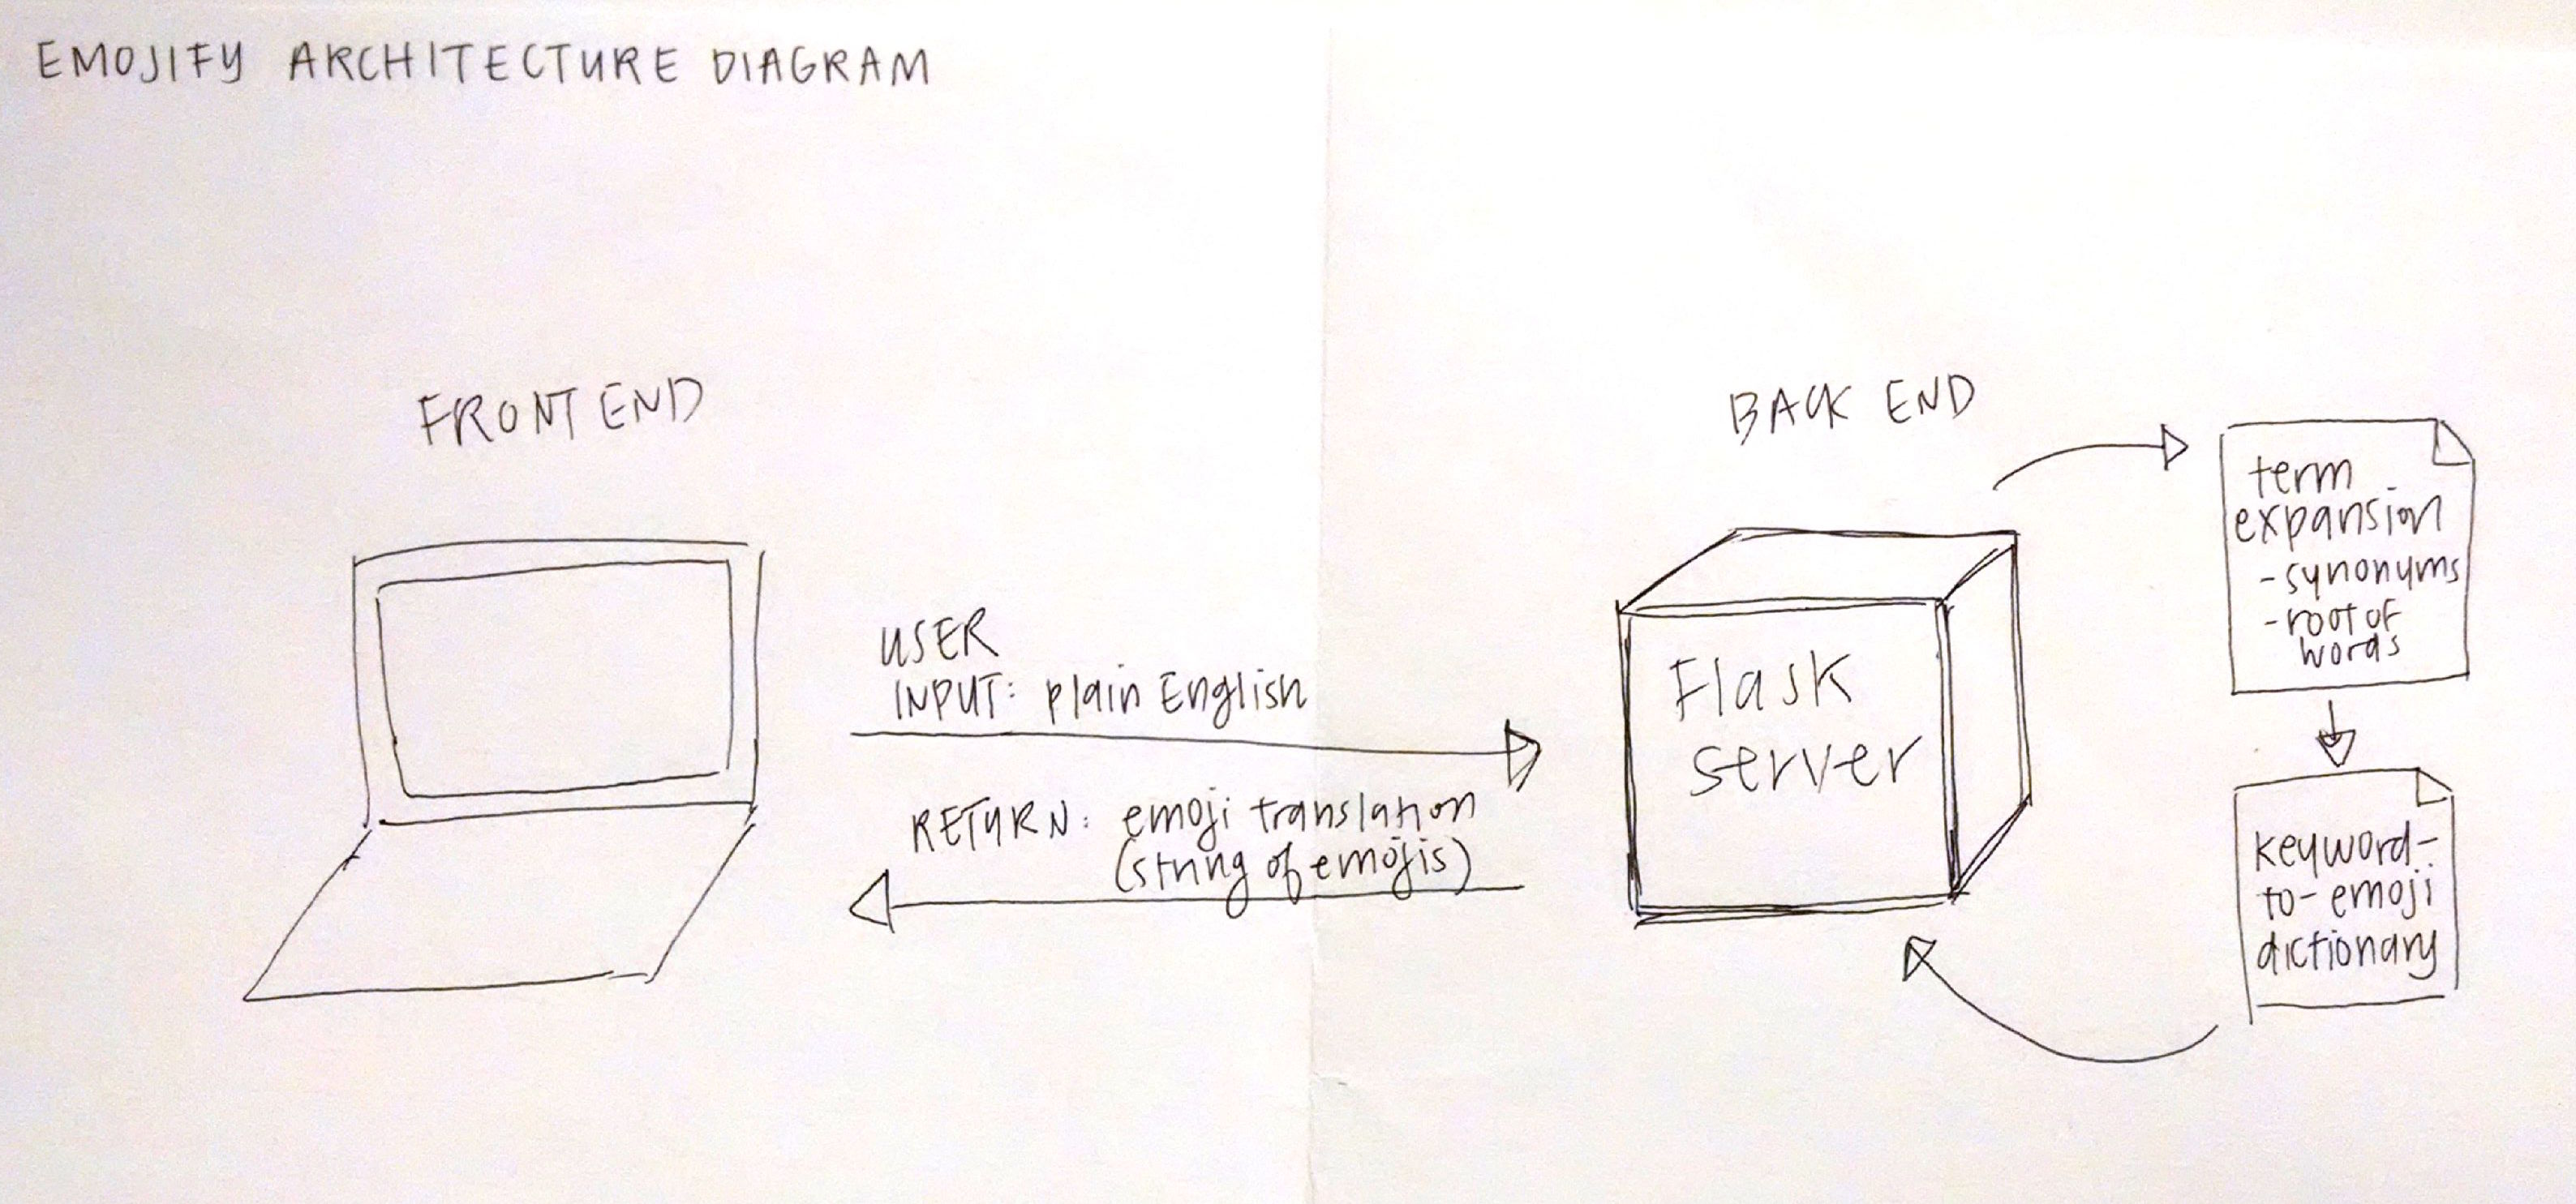 EMOJIFY ARCHITECTURE DIAGRAM
FRONT END
USER
INPUT: plain English
RETURN: emoji translation
(string of emojis)
BACK END
Flask
server
term
expansion
- synonyms
- root of
words
keyword-
to-emoji
dictionary